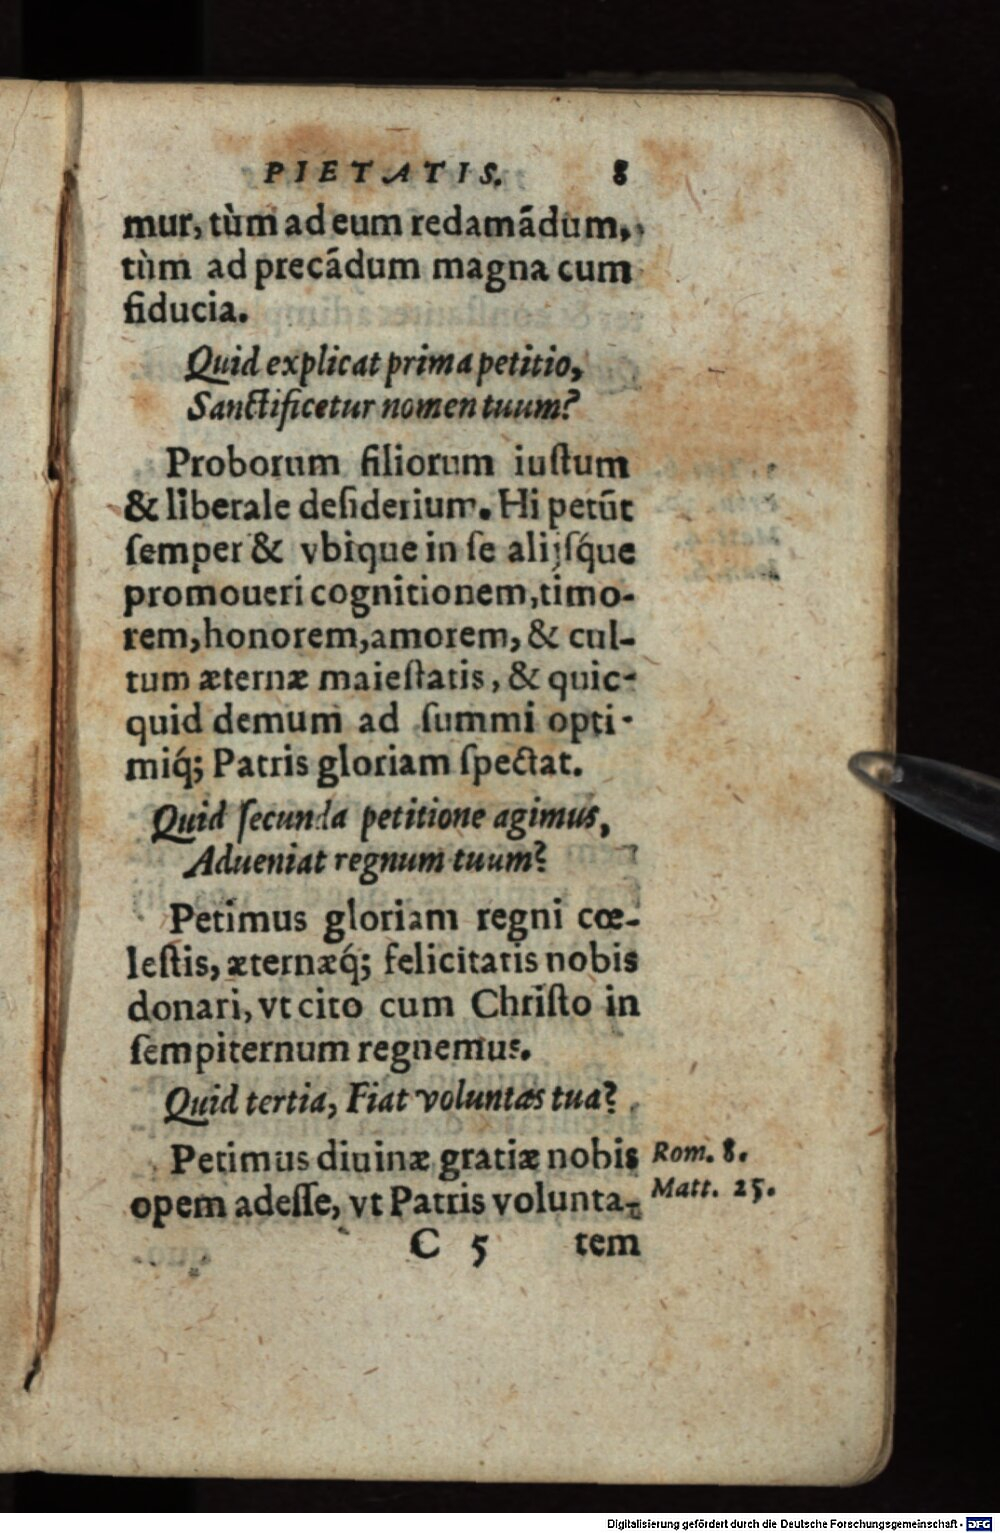 PIETATIS. 8
mur, tùm ad eum redamãdum,
tùm ad precãdum magna cum
fiducia.
Quid explicat prima petitio,
Sanctificetur nomen tuum?
Proborum filiorum iuſtum
& liberale deſiderium. Hi petũt
ſemper & vbique in ſe alijſq́ue
promoueri cognitionem, timo-
rem, honorem, amorem, & cul-
tum æternæ maieſtatis, & quic-
quid demum ad ſummi opti-
miq́; Patris gloriam ſpectat.
Quid ſecunda petitione agimus,
Adueniat regnum tuum?
Petimus gloriam regni cœ-
leſtis, æternæq́; felicitatis nobis
donari, vt cito cum Chriſto in
ſempiternum regnemus.
Quid tertia, Fiat voluntas tua?
Petimus diuinæ gratiæ nobis
opem adeſſe, vt Patris volunta-
Rom. 8.
Matt. 25.
C 5 tem
Digitalisierung gefördert durch die Deutsche Forschungsgemeinschaft - DFG